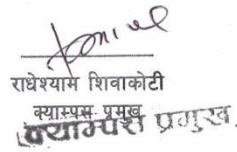 राधेश्याम शिवाकोटी
क्याम्पस प्रमुख
क्याम्पस प्रमुख